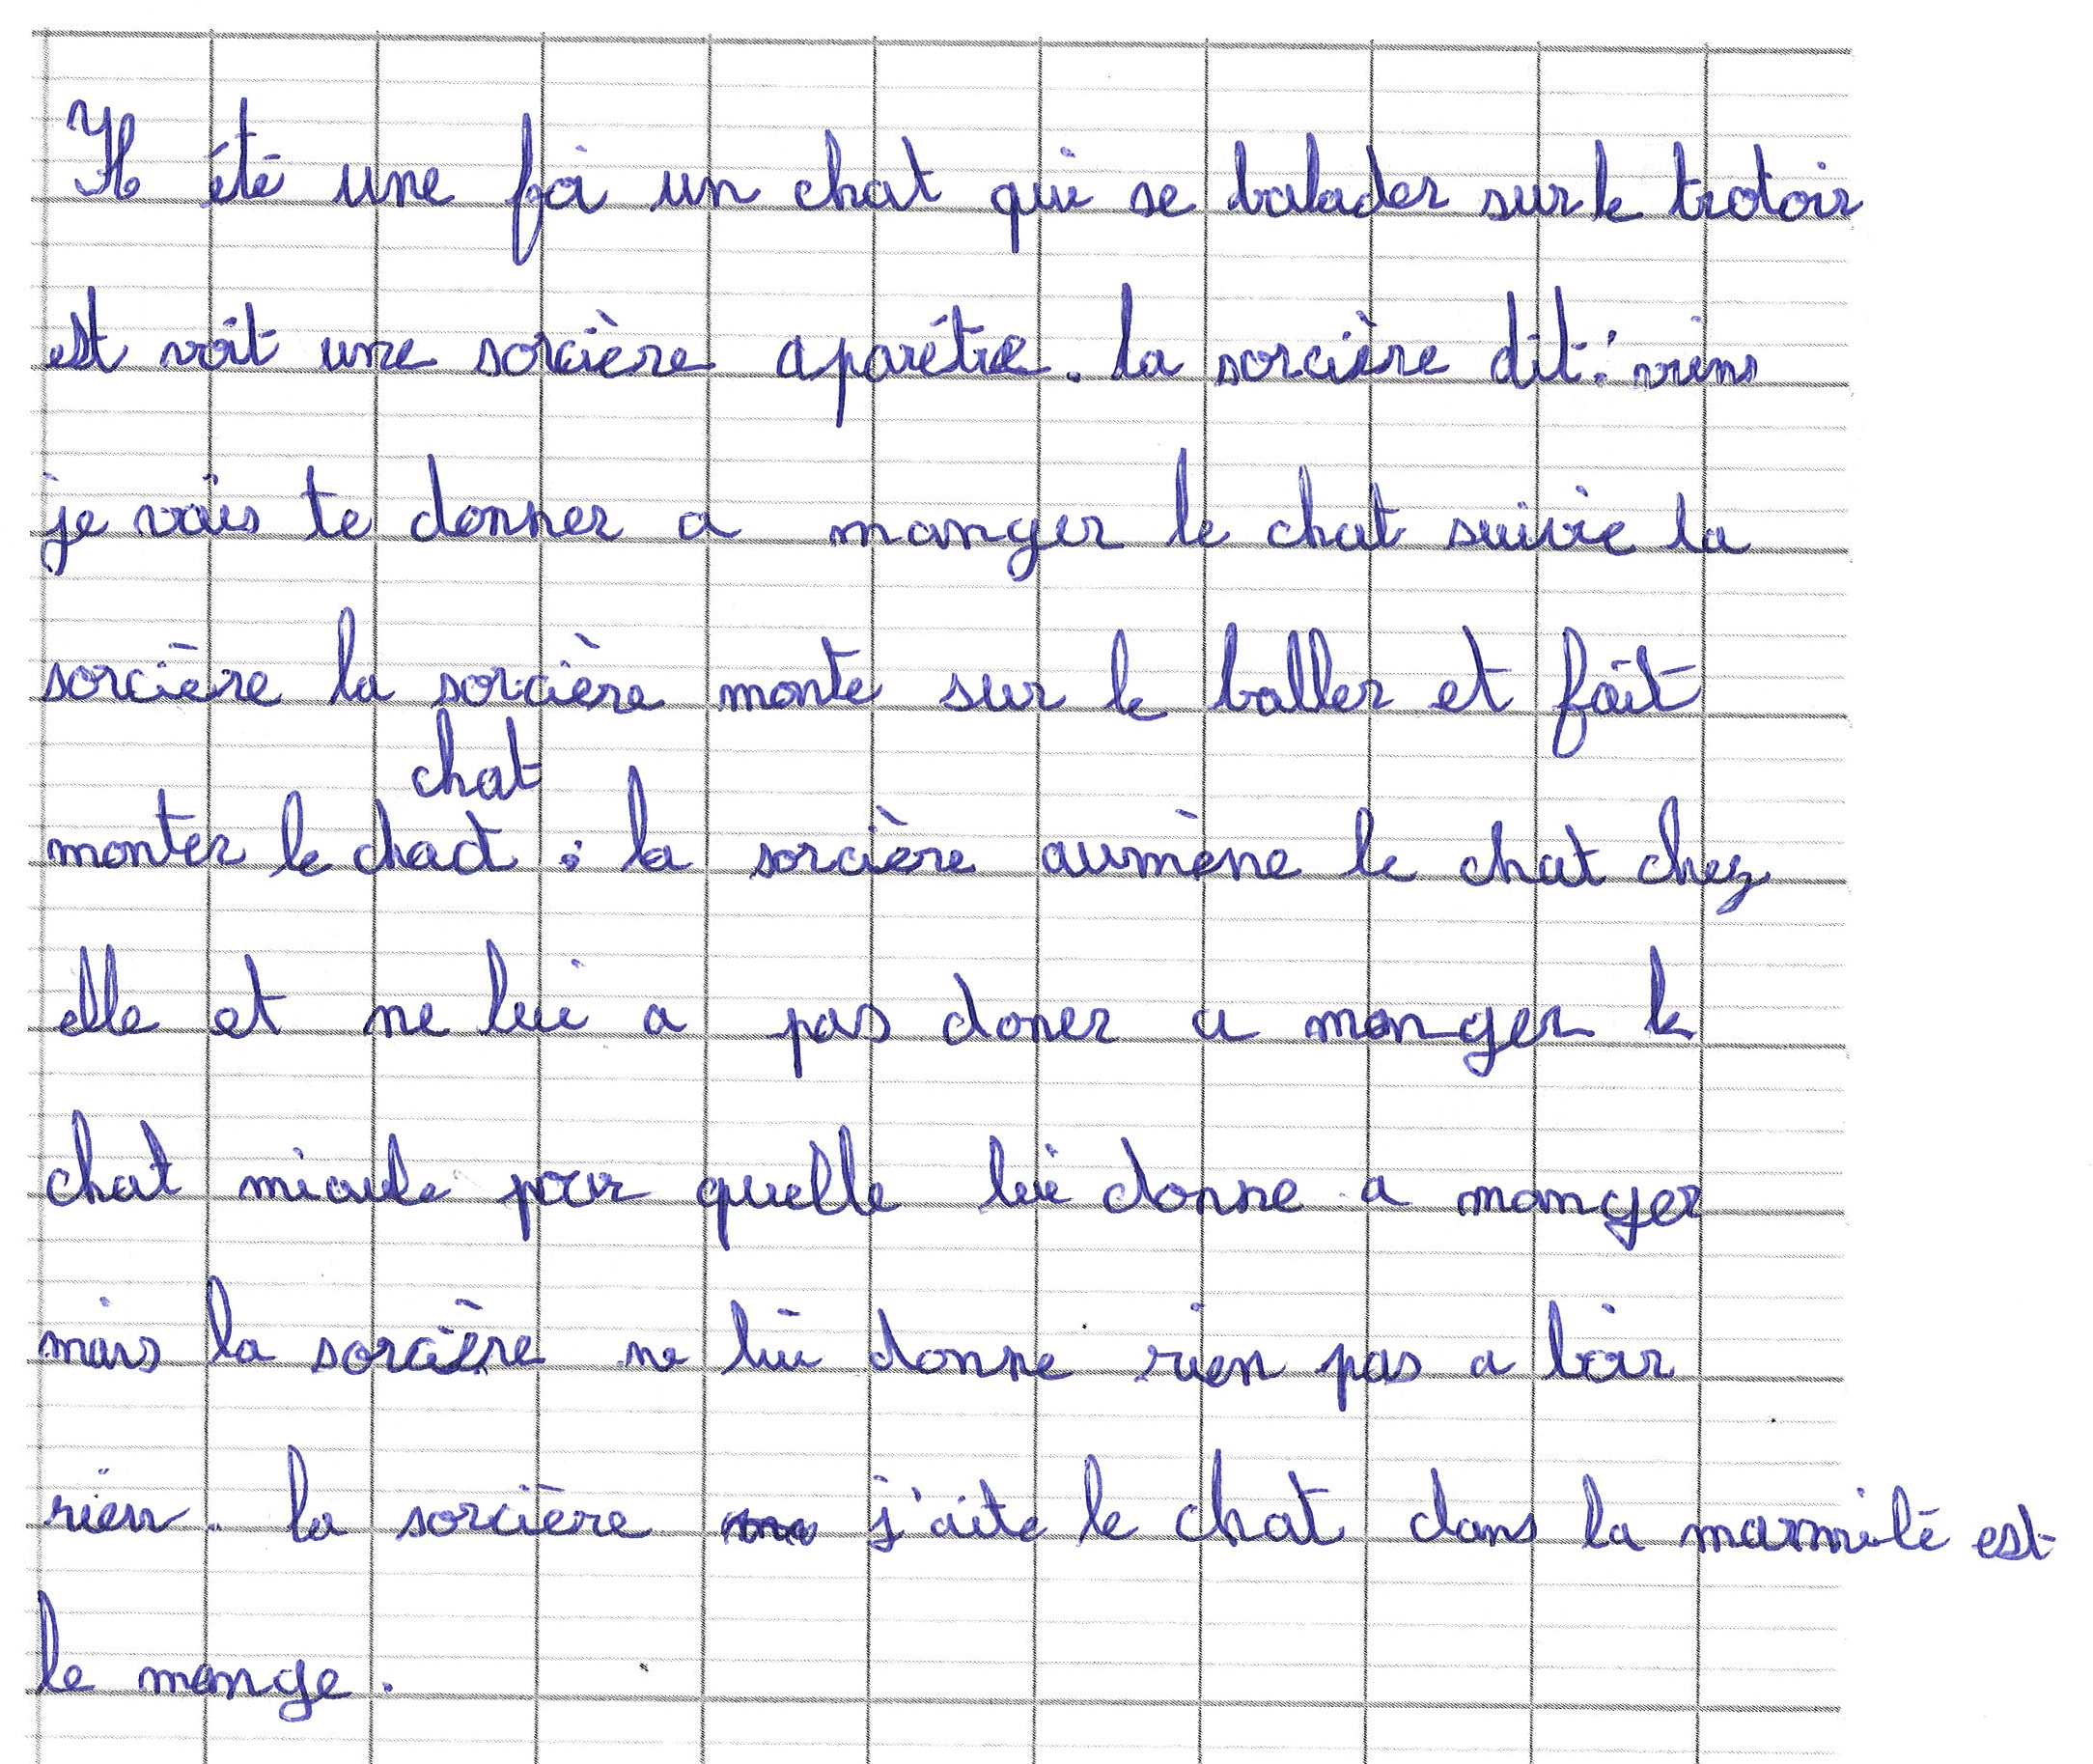 Il été une foi un chat qui se balader sur le trotoir
est voit une sorcière aparêtre. la sorcière dit : viens
je vais te donner a manger le chat suivie la
sorcière la sorcière monte sur le baller et fait
chat
monter le chact : la sorcière aumène le chat chez
elle et ne lui a pas doner a manger le
chat miaule pour quelle lui donne a manger
mais la sorcière ne lui donne rien pas a boir
rien. la sorcière j'aite le chat dans la marmite est
le mange.